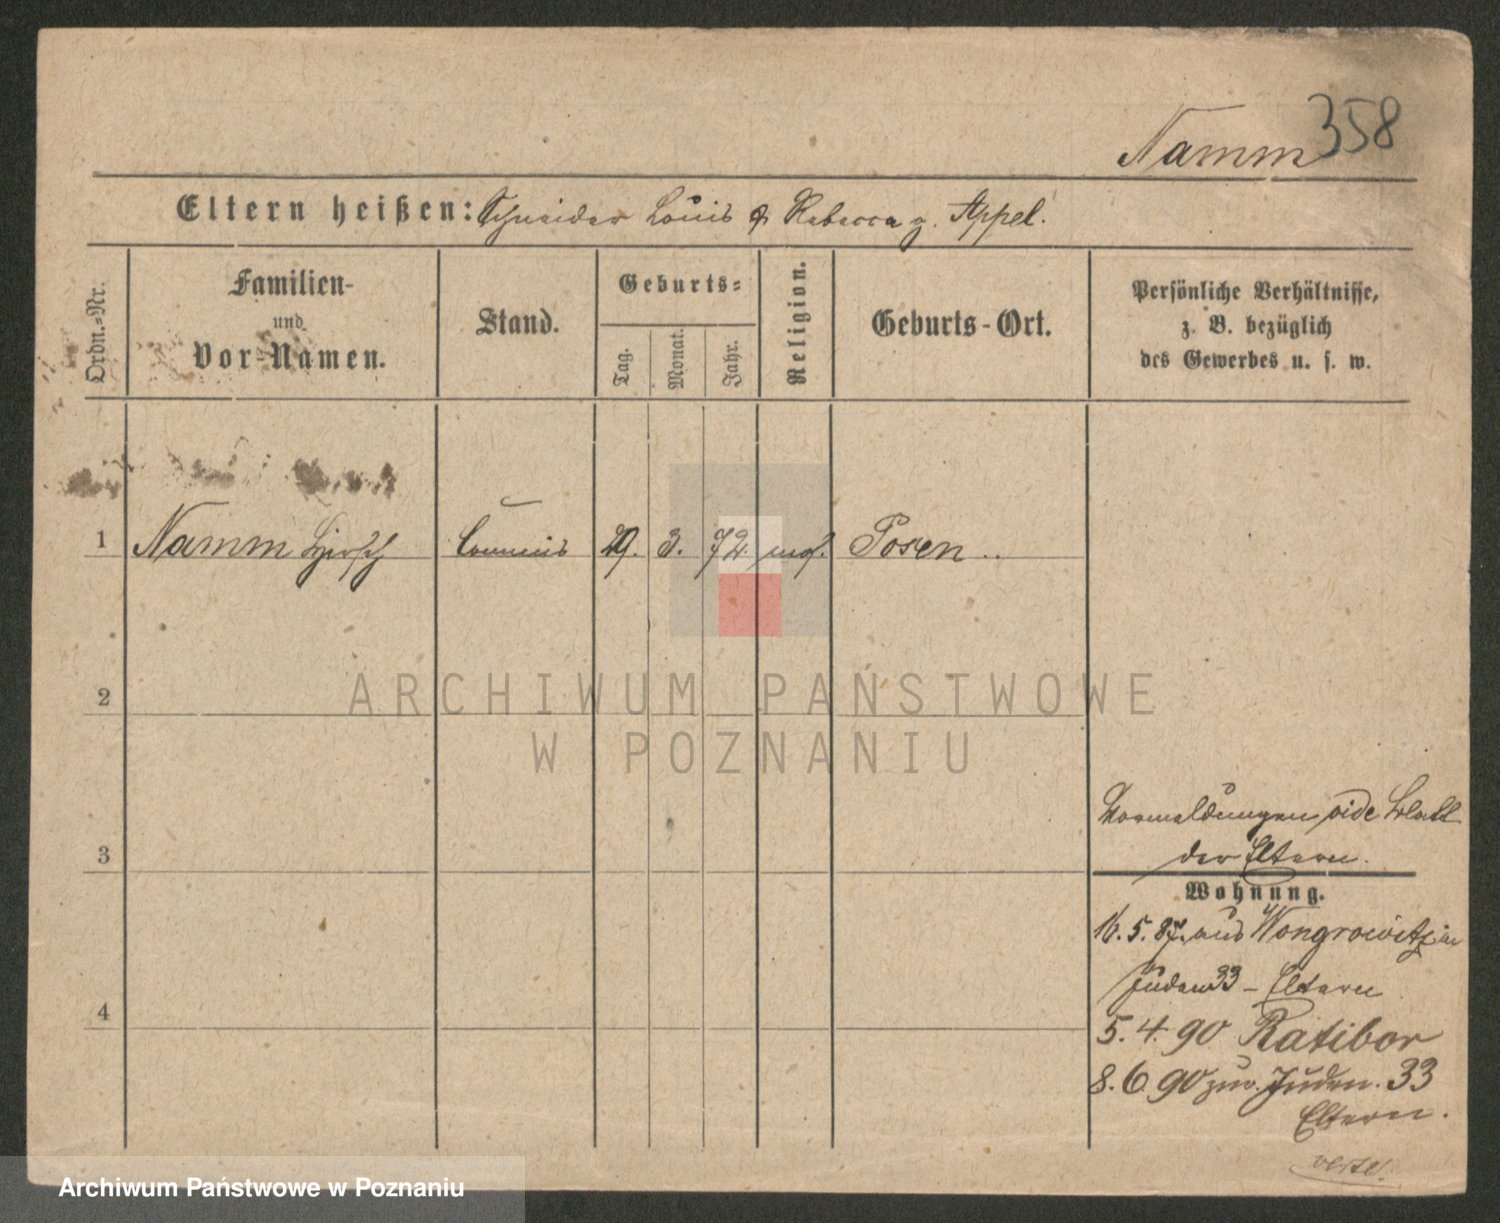 358
Namm
Eltern heißen: Schneider Louis & Rebecca g. Appel.
Ordn.-Nr.
Familien-
und
Vor-Namen.
Stand.
Geburts-
Tag.
Monat.
Jahr.
Religion.
Geburts-Ort.
Persönliche Verhältnisse,
z. B. bezüglich
des Gewerbes u. s. w.
1 Namm Hirsch Commis 29. 3. 72. mos. Posen
2
3
4
Vormeldungen vide Blatt
der Eltern.
Wohnung.
16. 5. 87. aus Wongrowitz in
Juden 33 - Eltern
5. 4. 90 Ratibor
8. 6. 90 zur. Juden. 33
Eltern.
ARCHIWUM PAŃSTWOWE
W POZNANIU
Archiwum Państwowe w Poznaniu